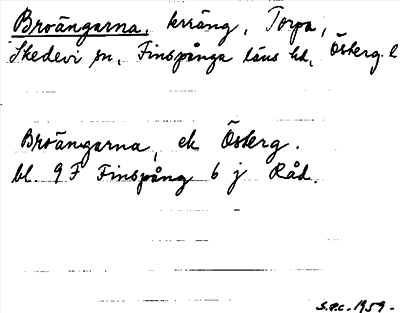 Broängarna, kräng, Torpa,
Skedevi sn, Finspånga läns hd, Österg. l
Broängarna, ek Österg.
bl. 9 F Finspång 6 j Råd.
S.P.C. 1959.